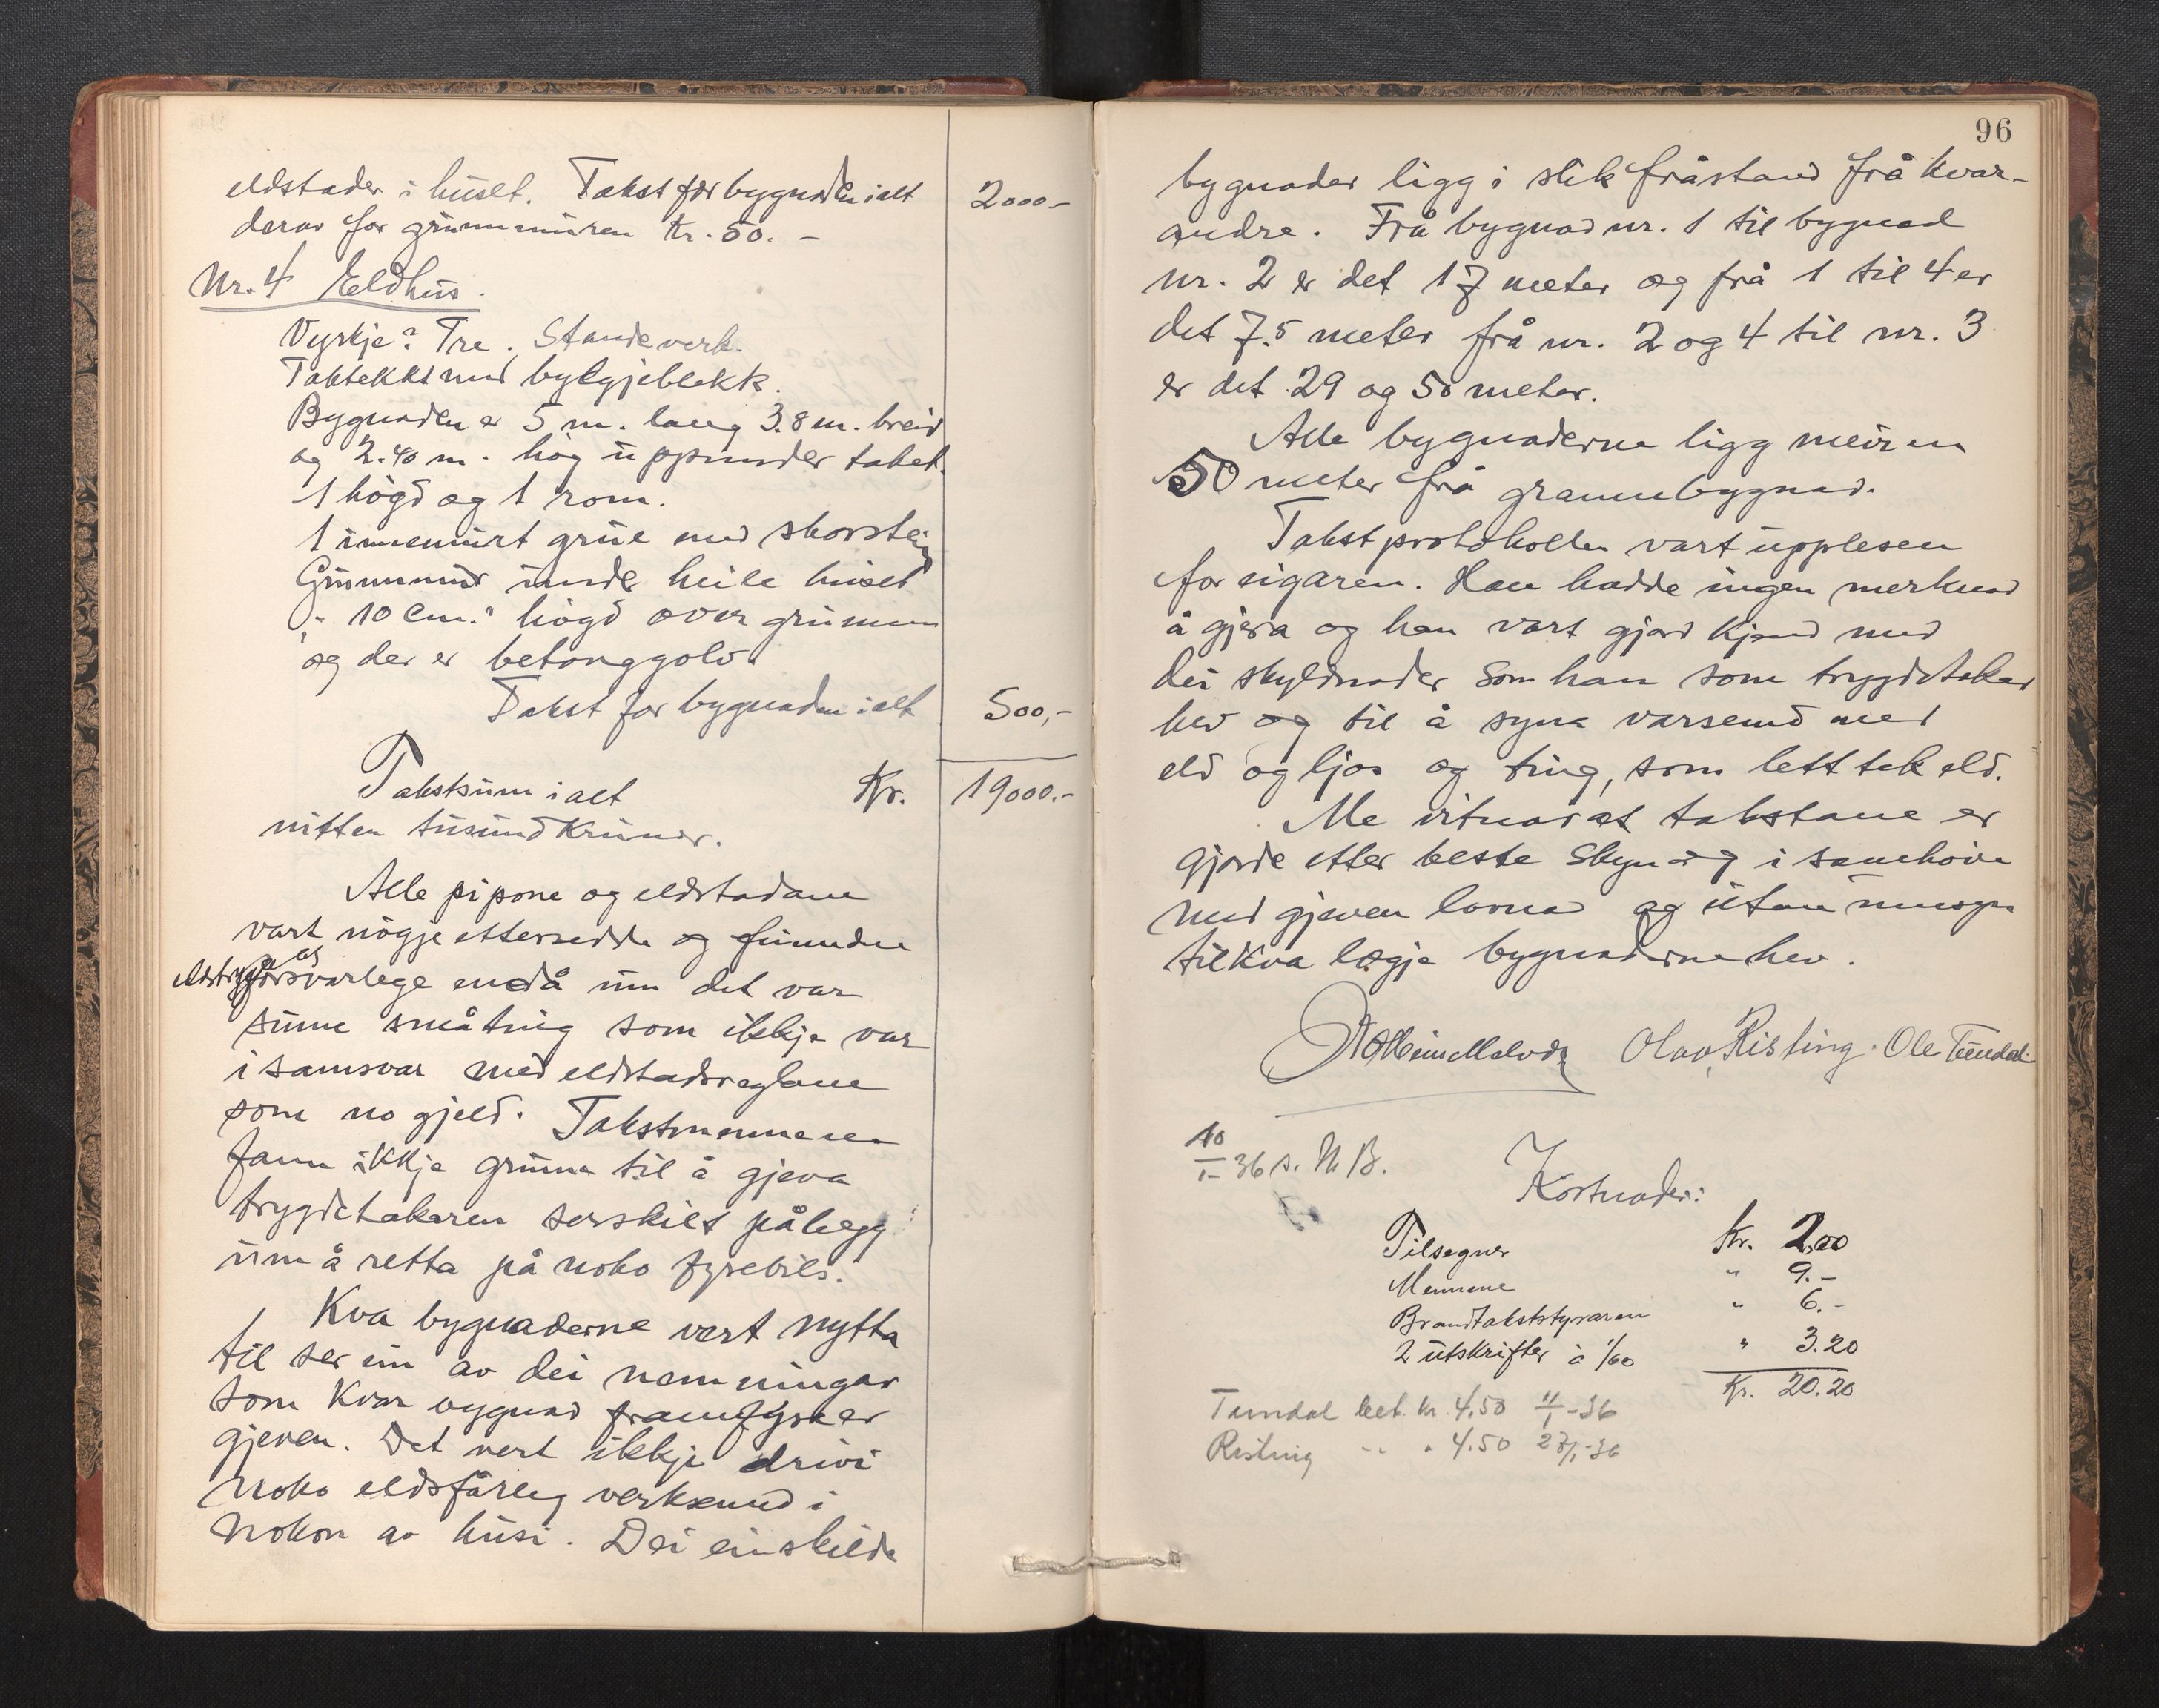 eldstader i huset. Takst for bygnaden ialt 2000.-
derav for grunnmuren kr. 50. -
Nr. 4 Eldhus.
Vyrkje: Tre. Standeverk.
Taktekt med bylgjeblekk.
Bygnaden er 5 m. lang 3.8 m. breid
og 2.40 m. høg uppunder taket.
1 høgd og 1 rom.
1 innemurt grue med skorstein
Grunnmur under heile huset
10 cm. høgd over grunnen
og der er betonggolv.
Takst for bygnaden ialt 500,-
Takstsum ialt Kr. 19000.-
nitten tusund Kruner.
Alle pipone og eldstadane
vart nøgje ettersedde og funndne
eldstrygge og
forsvarlege endå um det var
sume småting som ikkje var
i samsvar med eldstadsreglane
som no gjeld. Takstmennene
fann ikkje grunn til å gjeva
trygdetakaren serskilt pålegg
um å retta på noko fyrebils.
Kva bygnaderne vert nytta
til ser ein av dei nemningar
som kvar bygnad framfyre er
gjeven. Det vert ikkje drivi
noko eldsfårleg verksemd i
nokon av husi. Dei einskilde
96
bygnader ligg i slik fråstand frå kvar-
andre. Frå bygnad nr. 1 til bygnad
nr. 2 er det 17 meter og frå 1 til 4 er
det 7.5 meter frå nr. 2 og 4 til nr. 3
er det 29 og 50 meter.
Alle bygnaderne ligg meir en
50 meter frå grannebygnad.
Takstprotokollen vart upplesen
for eigaren. Han hadde ingen merknad
å gjera og han vart gjord kjend med
dei skyldnader som han som trygdetakar
hev og til å syna varsemd med
eld og ljos og ting, som lett tek eld.
Me vitnar at takstane er
gjorde etter beste skyn og i samhøve
med gjeven lovnad og utan umsyn
til kva lægje bygnaderne hev.
Olav Risting. Ole Tundal.
10/1-36 s. N.B.
Kostnader:
Tilsegner kr. 2,00
Mennene " 9.-
Brandtakststyraren " 6.-
2 utskrifter à 1/60 " 3.20
Kr. 20.20
Tundal bet. kr. 4.50 11/1-36
Risting " " 4.50 27/1-36